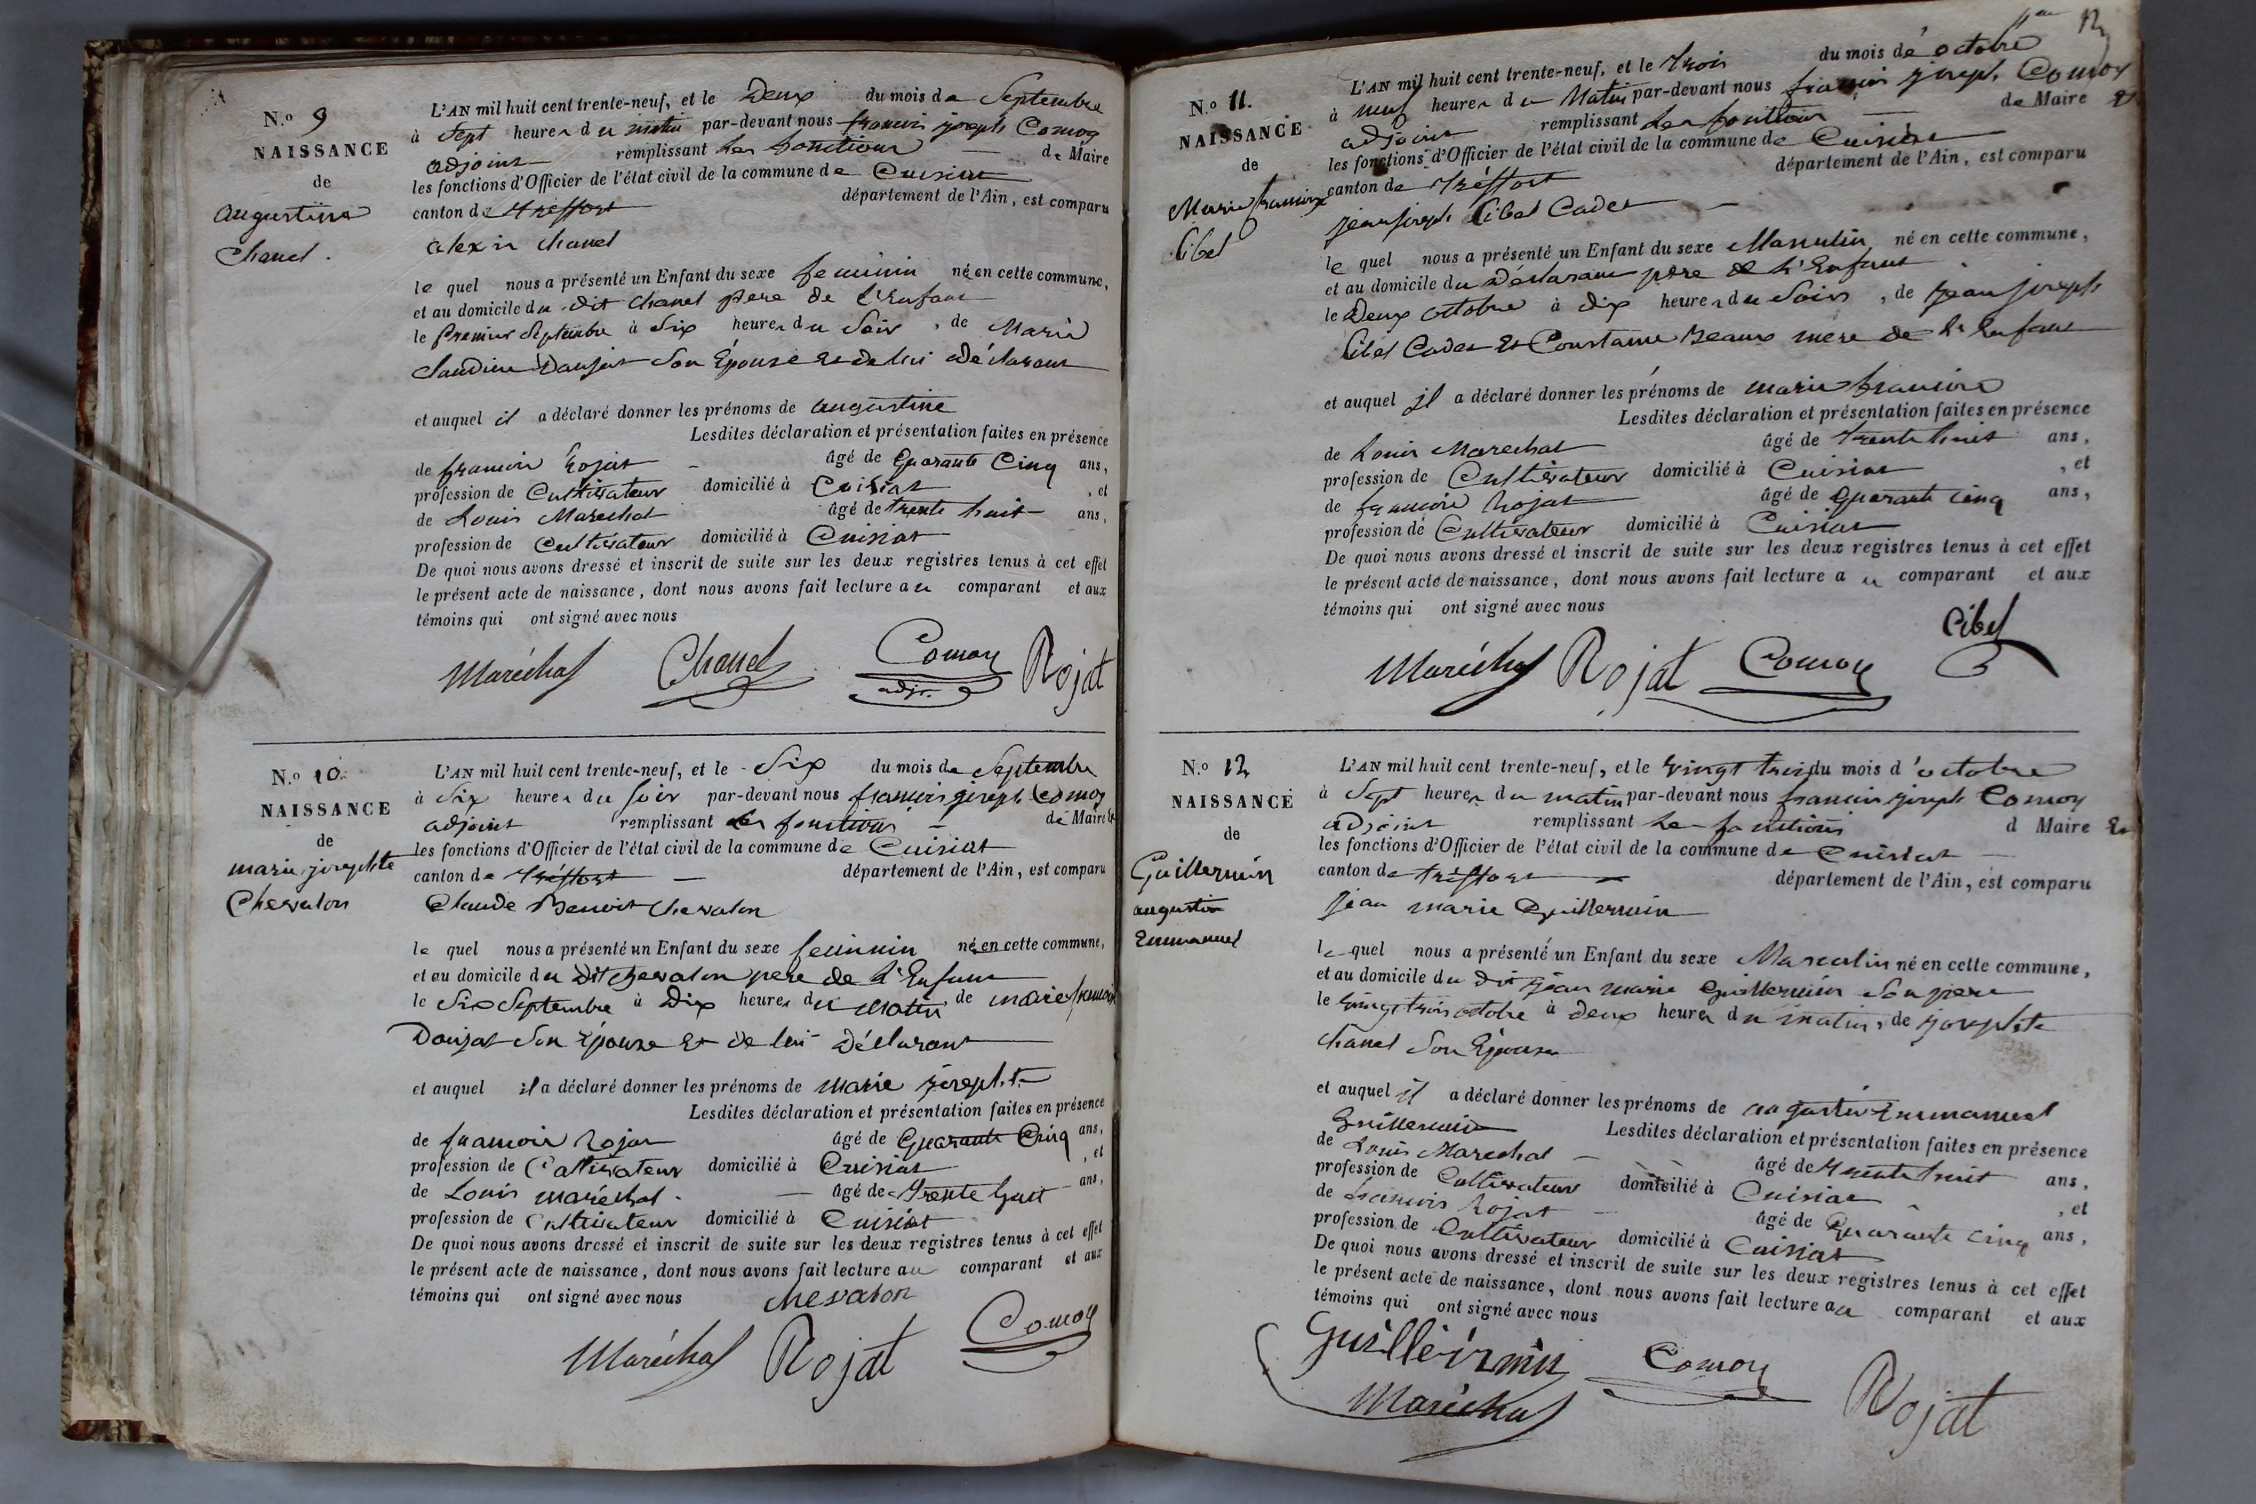 N.º 9
NAISSANCE
de
augustine
Chanel.
L'AN mil huit cent trente-neuf, et le Deux du mois de Septembre
à Sept heures du matin par-devant nous francois joseph Comoy
adjoint remplissant les fonctions de Maire
les fonctions d'Officier de l'état civil de la commune de Cuisiat
canton de treffort département de l'Ain, est comparu
alexis chanel
le quel nous a présenté un Enfant du sexe feminin né en cette commune,
et au domicile du dit chanel pere de l'Enfant
le Premier Septembre à Six heures du Soir, de Marie
Claudine Daujat Son Épouse et de lui déclarant
et auquel il a déclaré donner les prénoms de augustine
Lesdites déclaration et présentation faites en présence
de francois Rojat âgé de Quarante Cinq ans,
profession de Cultivateur domicilié à Cuisiat, et
de Louis Marechal âgé de trente huit ans,
profession de Cultivateur domicilié à Cuisiat
De quoi nous avons dressé et inscrit de suite sur les deux registres tenus à cet effet
le présent acte de naissance, dont nous avons fait lecture au comparant et aux
témoins qui ont signé avec nous
Maréchal Chanel Comoy adjt. Rojat
N.º 10.
NAISSANCE
de
marie josephte
Chevalon
L'AN mil huit cent trente-neuf, et le Six du mois de Septembre
à Six heures du soir par-devant nous francois joseph Comoy
adjoint remplissant les fonctions de Maire et
les fonctions d'Officier de l'état civil de la commune de Cuisiat
canton de tréffort département de l'Ain, est comparu
Claude Benoit chevalon
le quel nous a présenté un Enfant du sexe feminin né en cette commune,
et au domicile du dit chevalon pere de l'Enfant
le Six Septembre à Dix heures du Matin de marie francoise
Doujat Son Épouse et de lui Déclarant
et auquel il a déclaré donner les prénoms de marie josephte
Lesdites déclaration et présentation faites en présence
de francois Rojat âgé de Quarante Cinq ans,
profession de Cultivateur domicilié à Cuisiat, et
de Louis maréchal. âgé de trente huit ans,
profession de Cultivateur domicilié à Cuisiat
De quoi nous avons dressé et inscrit de suite sur les deux registres tenus à cet effet
le présent acte de naissance, dont nous avons fait lecture au comparant et aux
témoins qui ont signé avec nous chevalon
Maréchal Rojat Comoy
12
N.º 11.
NAISSANCE
de
Marie francoise
Cibel
L'AN mil huit cent trente-neuf, et le trois du mois de octobre
à neuf heures du Matin par-devant nous francois joseph Comoy
adjoint remplissant les fonctions de Maire et
les fonctions d'Officier de l'état civil de la commune de Cuisiat
canton de tréffort département de l'Ain, est comparu
jean joseph Cibel Cadet
le quel nous a présenté un Enfant du sexe Masculin né en cette commune,
et au domicile du Déclarant père de l'Enfant
le Deux octobre à dix heures du Soir, de jean joseph
Cibel Cadet et Constance Beaux mere de l'Enfant
et auquel il a déclaré donner les prénoms de marie francoise
Lesdites déclaration et présentation faites en présence
de Louis Marechal âgé de trente huit ans,
profession de Cultivateur domicilié à Cuisiat, et
de francois Rojat âgé de Quarante cinq ans,
profession de Cultivateur domicilié à Cuisiat
De quoi nous avons dressé et inscrit de suite sur les deux registres tenus à cet effet
le présent acte de naissance, dont nous avons fait lecture au comparant et aux
témoins qui ont signé avec nous
Cibel
Maréchal Rojat Comoy
N.º 12
NAISSANCE
de
Guillermin
augustin
Emmanuel
L'AN mil huit cent trente-neuf, et le vingt trois du mois d'octobre
à Sept heures du matin par-devant nous francois joseph Comoy
adjoint remplissant les fonctions d Maire et
les fonctions d'Officier de l'état civil de la commune de Cuisiat
canton de tréffort département de l'Ain, est comparu
jean marie Guillermin
le quel nous a présenté un Enfant du sexe Masculin né en cette commune,
et au domicile du dit jean marie Guillermin Son pere
le vingt trois octobre à deux heures du matin, de josephte
chanel Son Épouse
et auquel il a déclaré donner les prénoms de augustin Emmanuel
Guillermin Lesdites déclaration et présentation faites en présence
de Louis Marechal âgé de trente huit ans,
profession de Cultivateur domicilié à Cuisiat, et
de francois Rojat âgé de Quarante cinq ans,
profession de Cultivateur domicilié à Cuisiat
De quoi nous avons dressé et inscrit de suite sur les deux registres tenus à cet effet
le présent acte de naissance, dont nous avons fait lecture au comparant et aux
témoins qui ont signé avec nous
Guilleirmin Comoy
Maréchal Rojat